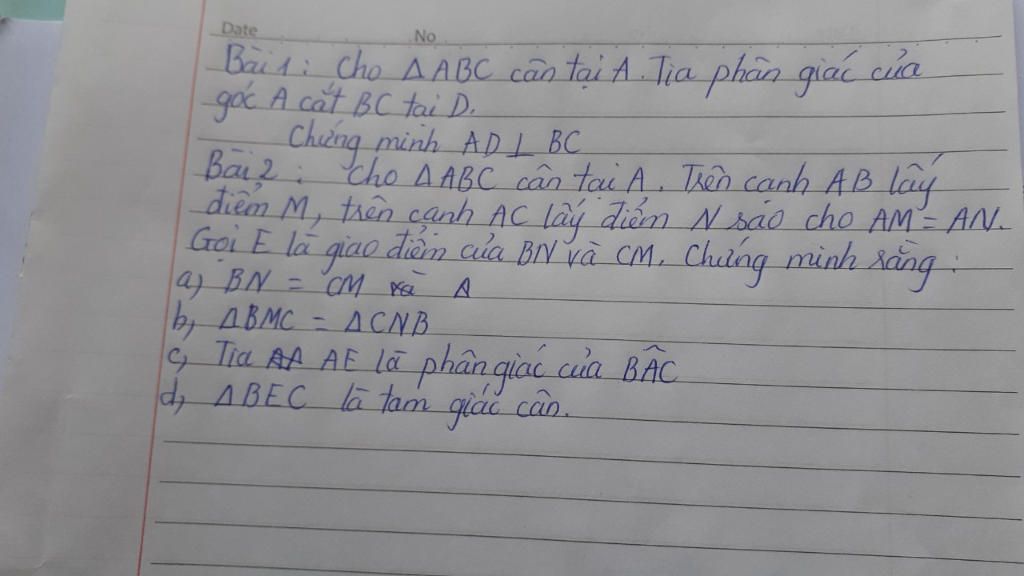 Date No
Bài 1: Cho ΔABC cân tại A. Tia phân giác của
góc A cắt BC tại D.
Chứng minh AD ⊥ BC
Bài 2: Cho ΔABC cân tại A. Trên cạnh AB lấy
điểm M, trên cạnh AC lấy điểm N sao cho AM = AN.
Gọi E là giao điểm của BN và CM. Chứng minh rằng:
a, BN = CM và A
b, ΔBMC = ΔCNB
c, Tia AA AE là phân giác của BÂC
d, ΔBEC là tam giác cân.